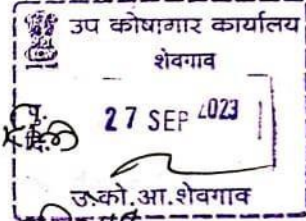 उप कोषागार कार्यालय
शेवगाव
27 SEP 2023
उ.को.आ.शेवगाव